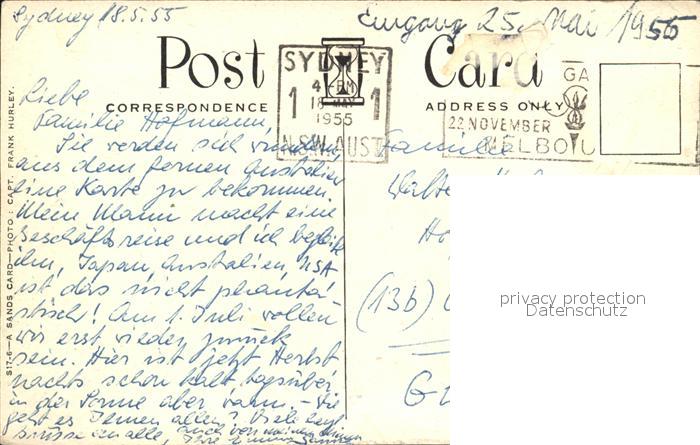 Sydney 18.5.55
Eingang 25. Mai 1955
Post Card
CORRESPONDENCE
ADDRESS ONLY
SYDNEY
4 - PM
1 18 MAY 1
1955
N.S.W. AUST
GA
22 NOVEMBER
MELBOU
Liebe
Familie Hofmann,
Sie werden sich wundern
aus dem fernen Australien
eine Karte zu bekommen.
Mein Mann macht eine
Geschäftsreise und ich begleite
ihn, Japan, Australien, USA
ist das nicht phanta-
stisch! Am 1. Juli wollen
wir erst wieder zurück
sein. Hier ist jetzt Herbst
nachts schon kalt, tagsüber
in der Sonne aber warm. – Wie
geht es Ihnen allen? Viele herzl.
Grüsse an alle, auch von meinem Mann
Ihre
Familie
Walte
Ho
(13b)
G
S17-6—A SANDS CARD—PHOTO: CAPT. FRANK HURLEY.
privacy protection
Datenschutz